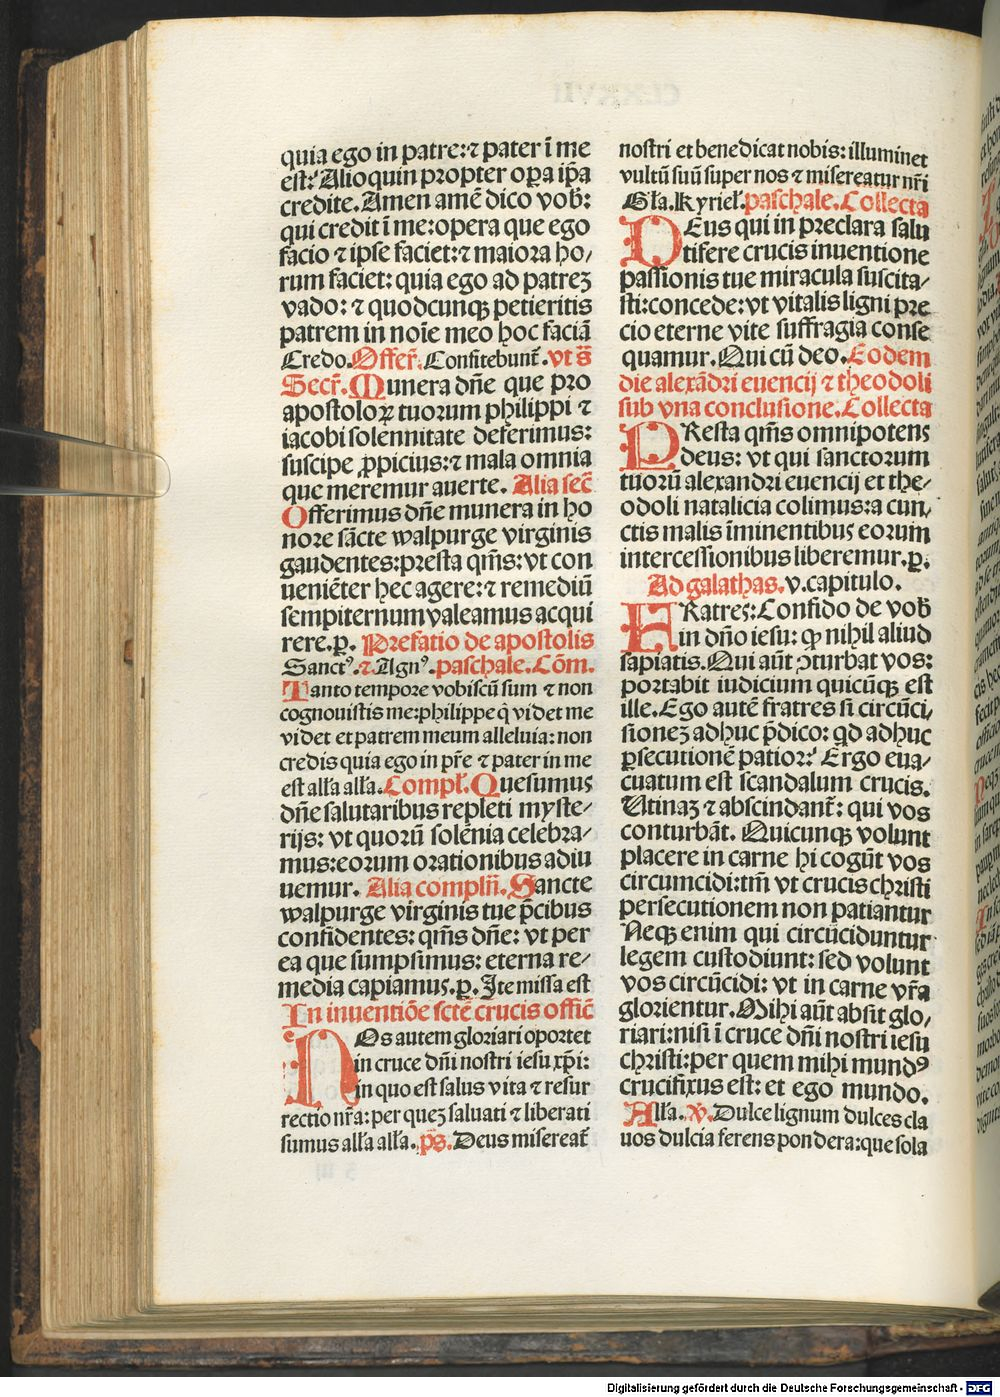 quia ego in patre:⁊ pater ī me
est:ʼ Alioquin propter oꝑa ip̄a
credite. Amen amē dico vob̄:
qui credit ī me:opera que ego
facio ⁊ ipse faciet:⁊ maiora ho/
rum faciet: quia ego ad patreꝫ
vado: ⁊ quodcunqꝫ petieritis
patrem in noīe meo hoc faciā
Credo. Offer̄. Confitebunt̄. vt s̄
Secr̄. Munera dn̄e que pro
apostoloꝝ tuorum philippi ⁊
iacobi solennitate deferimus:
suscipe ꝓpicius:⁊ mala omnia
que meremur auerte. Alia sec̄
Offerimus dn̄e munera in ho
nore sācte walpurge virginis
gaudentes:presta qm̄s: vt con
ueniēter hec agere:⁊ remediū
sempiternum valeamus acqui
rere.ꝑ. Prefatio de apostolis
Sanctꝰ.⁊ Agnꝰ. paschale. Cōm.
Tanto tempore vobiscū sum ⁊ non
cognouistis me:philippe q̇ videt me
videt et patrem meum alleluia: non
credis quia ego in pr̄e ⁊ pater in me
est alła alła. Compł. Quesumus
dn̄e salutaribus repleti myste/
rijs: vt quorū solēnia celebra/
mus:eorum orationibus adiu
uemur. Alia compln̄. Sancte
walpurge virginis tue p̄cibus
confidentes: qm̄s dn̄e: vt per
ea que sumpsimus: eterna re/
media capiamus.ꝑ. Ite missa est
In inuentiōe sctē crucis offic̄
NOs autem gloriari oportet
in cruce dn̄i nostri iesu xp̄i:
in quo est salus vita ⁊ resur
rectio nr̄a: per queꝫ saluati ⁊ liberati
sumus alła alła. p̄s. Deus misereat̄
nostri et benedicat nobis: illuminet
vultū suū super nos ⁊ misereatur nr̄i
Gła. Kyrieł. paschale. Collecta
DEus qui in preclara salu
tifere crucis inuentione
passionis tue miracula suscita/
sti:concede: vt vitalis ligni pre
cio eterne vite suffragia conse
quamur. Qui cū deo. Eodem
die alexādri euencij ⁊ theodoli
sub vna conclusione. Collecta
PResta qm̄s omnipotens
deus: vt qui sanctorum
tuorū alexandri euencij et the/
odoli natalicia colimus:a cun/
ctis malis īminentibus eorum
intercessionibus liberemur.ꝑ.
Ad galathas. v. capitulo.
FRatres: Confido de vob̄
in dn̄o iesu: ꝙ nihil aliud
sapiatis. Qui aūt ↄturbat vos:
portabit iudicium quicūqꝫ est
ille. Ego autē fratres si circūci/
sioneꝫ adhuc p̄dico: qd adhuc
ꝑsecutionē patior:ʼ Ergo eua/
cuatum est scandalum crucis.
Utinaꝫ ⁊ abscindant̄: qui vos
conturbāt. Quicunqꝫ volunt
placere in carne hi cogūt vos
circumcidi:tm̄ vt crucis christi
persecutionem non patiantur
Neqꝫ enim qui circūciduntur
legem custodiunt: sed volunt
vos circūcidi: vt in carne vr̄a
glorientur. Mihi aūt absit glo/
riari:nisi ī cruce dn̄i nostri iesu
christi:per quem mihi mundꝰ
crucifixus est: et ego mundo.
Alła. ℣. Dulce lignum dulces cla
uos dulcia ferens pondera:que sola
Digitalisierung gefördert durch die Deutsche Forschungsgemeinschaft - DFG